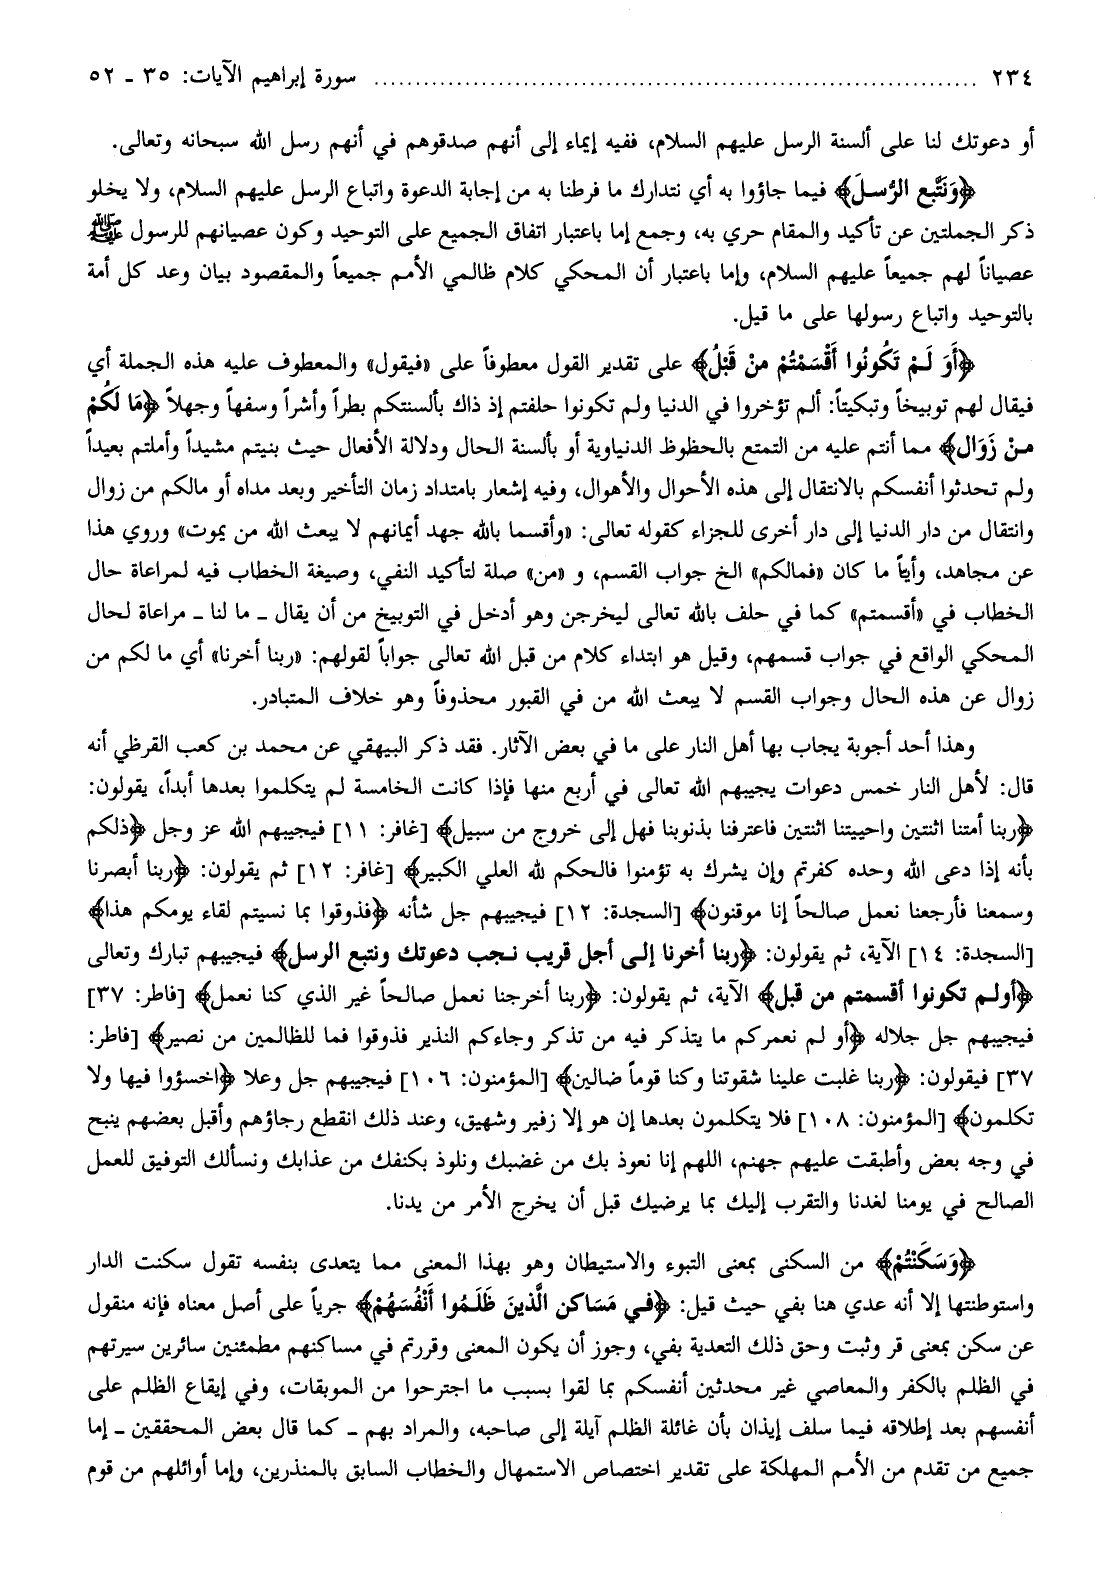 ٢٣٤ ........................................................................ سورة إبراهيم الآيات: ٣٥ ـ ٥٢
أو دعوتك لنا على ألسنة الرسل عليهم السلام، ففيه إيماء إلى أنهم صدقوهم في أنهم رسل الله سبحانه وتعالى.
﴿وَنَتَّبِعِ الرُّسلَ﴾ فيما جاؤوا به أي نتدارك ما فرطنا به من إجابة الدعوة واتباع الرسل عليهم السلام، ولا يخلو
ذكر الجملتين عن تأكيد والمقام حري به، وجمع إما باعتبار اتفاق الجميع على التوحيد وكون عصيانهم للرسول ﷺ
عصياناً لهم جميعاً عليهم السلام، وإما باعتبار أن المحكي كلام ظالمي الأمم جميعاً والمقصود بيان وعد كل أمة
بالتوحيد واتباع رسولها على ما قيل.
﴿أَوَ لَمْ تَكُونُوا أَقْسَمْتُمْ منْ قَبْلُ﴾ على تقدير القول معطوفاً على «فيقول» والمعطوف عليه هذه الجملة أي
فيقال لهم توبيخاً وتبكيتاً: ألم تؤخروا في الدنيا ولم تكونوا حلفتم إذ ذاك بألسنتكم بطراً وأشراً وسفهاً وجهلاً ﴿مَا لَكُمْ
منْ زَوَال﴾ مما أنتم عليه من التمتع بالحظوظ الدنياوية أو بألسنة الحال ودلالة الأفعال حيث بنيتم مشيداً وأملتم بعيداً
ولم تحدثوا أنفسكم بالانتقال إلى هذه الأحوال والأهوال، وفيه إشعار بامتداد زمان التأخير وبعد مداه أو مالكم من زوال
وانتقال من دار الدنيا إلى دار أخرى للجزاء كقوله تعالى: «وأقسما بالله جهد أيمانهم لا يبعث الله من يموت» وروي هذا
عن مجاهد، وأياً ما كان «فمالكم» الخ جواب القسم، و «من» صلة لتأكيد النفي، وصيغة الخطاب فيه لمراعاة حال
الخطاب في «أقسمتم» كما في حلف بالله تعالى ليخرجن وهو أدخل في التوبيخ من أن يقال ـ ما لنا ـ مراعاة لحال
المحكي الواقع في جواب قسمهم، وقيل هو ابتداء كلام من قبل الله تعالى جواباً لقولهم: «ربنا أخرنا» أي ما لكم من
زوال عن هذه الحال وجواب القسم لا يبعث الله من في القبور محذوفاً وهو خلاف المتبادر.
وهذا أحد أجوبة يجاب بها أهل النار على ما في بعض الآثار. فقد ذكر البيهقي عن محمد بن كعب القرظي أنه
قال: لأهل النار خمس دعوات يجيبهم الله تعالى في أربع منها فإذا كانت الخامسة لم يتكلموا بعدها أبداً، يقولون:
﴿ربنا أمتنا اثنتين واحييتنا اثنتين فاعترفنا بذنوبنا فهل إلى خروج من سبيل﴾ [غافر: ١١] فيجيبهم الله عز وجل ﴿ذلكم
بأنه إذا دعى الله وحده كفرتم وإن يشرك به تؤمنوا فالحكم لله العلي الكبير﴾ [غافر: ١٢] ثم يقولون: ﴿ربنا أبصرنا
وسمعنا فأرجعنا نعمل صالحاً إنا موقنون﴾ [السجدة: ١٢] فيجيبهم جل شأنه ﴿فذوقوا بما نسيتم لقاء يومكم هذا﴾
[السجدة: ١٤] الآية، ثم يقولون: ﴿ربنا أخرنا إلى أجل قريب نجب دعوتك ونتبع الرسل﴾ فيجيبهم تبارك وتعالى
﴿أولم تكونوا أقسمتم من قبل﴾ الآية، ثم يقولون: ﴿ربنا أخرجنا نعمل صالحاً غير الذي كنا نعمل﴾ [فاطر: ٣٧]
فيجيبهم جل جلاله ﴿أو لم نعمركم ما يتذكر فيه من تذكر وجاءكم النذير فذوقوا فما للظالمين من نصير﴾ [فاطر:
٣٧] فيقولون: ﴿ربنا غلبت علينا شقوتنا وكنا قوماً ضالين﴾ [المؤمنون: ١٠٦] فيجيبهم جل وعلا ﴿اخسؤوا فيها ولا
تكلمون﴾ [المؤمنون: ١٠٨] فلا يتكلمون بعدها إن هو إلا زفير وشهيق، وعند ذلك انقطع رجاؤهم وأقبل بعضهم ينبح
في وجه بعض وأطبقت عليهم جهنم، اللهم إنا نعوذ بك من غضبك ونلوذ بكنفك من عذابك ونسألك التوفيق للعمل
الصالح في يومنا لغدنا والتقرب إليك بما يرضيك قبل أن يخرج الأمر من يدنا.
﴿وَسَكَنْتُمْ﴾ من السكنى بمعنى التبوء والاستيطان وهو بهذا المعنى مما يتعدى بنفسه تقول سكنت الدار
واستوطنتها إلا أنه عدي هنا بفي حيث قيل: ﴿في مَسَاكن الَّذينَ ظَلَمُوا أَنْفُسَهُمْ﴾ جرياً على أصل معناه فإنه منقول
عن سكن بمعنى قر وثبت وحق ذلك التعدية بفي، وجوز أن يكون المعنى وقررتم في مساكنهم مطمئنين سائرين سيرتهم
في الظلم بالكفر والمعاصي غير محدثين أنفسكم بما لقوا بسبب ما اجترحوا من الموبقات، وفي إيقاع الظلم على
أنفسهم بعد إطلاقه فيما سلف إيذان بأن غائلة الظلم آيلة إلى صاحبه، والمراد بهم ـ كما قال بعض المحققين ـ إما
جميع من تقدم من الأمم المهلكة على تقدير اختصاص الاستمهال والخطاب السابق بالمنذرين، وإما أوائلهم من قوم